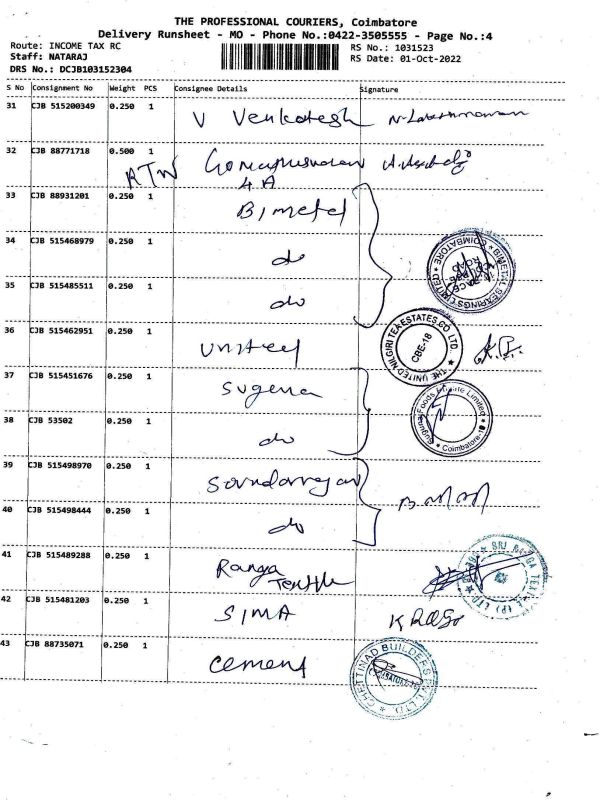 THE PROFESSIONAL COURIERS, Coimbatore
Delivery Runsheet - MO - Phone No.:0422-3505555 - Page No.:4
Route: INCOME TAX RC
RS No.: 1031523
Staff: NATARAJ
RS Date: 01-Oct-2022
DRS No.: DCJB103152304
S No Consignment No Weight PCS Consignee Details Signature
31 CJB 515200349 0.250 1 V Venkatesh
32 CJB 88771718 0.500 1
4A
33 CJB 88931201 0.250 1 Bimetal
34 CJB 515468979 0.250 1 do
BIMETAL BEARINGS LIMITED * COIMBATORE *
35 CJB 515485511 0.250 1 do
36 CJB 515462951 0.250 1 United
* THE UNITED NILGIRI TEA ESTATES CO. LTD. CBE-18
37 CJB 515451676 0.250 1 Suguna
Suguna Foods Private Limited * Coimbatore-18 *
38 CJB 53502 0.250 1 do
39 CJB 515498970 0.250 1
40 CJB 515498444 0.250 1 do
41 CJB 515489288 0.250 1 Ranga
Textile
42 CJB 515481203 0.250 1 SIMA
43 CJB 88735071 0.250 1 cement
CHETTINAD BUILDERS PVT. LTD. *